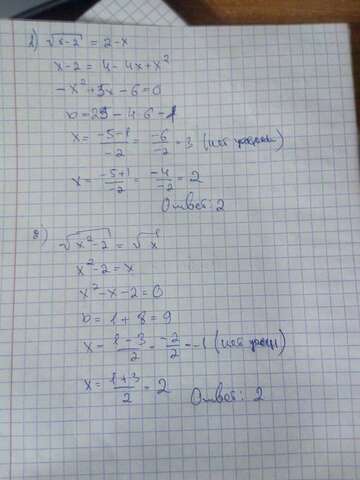 1) √x-2 = 2-x
x-2 = 4-4x+x²
-x²+5x-6=0
D=25-4·6=1
x = -5-1/-2 = -6/-2 = 3 (нет
x = -5+1/-2 = -4/-2 = 2
Ответ: 2
2) √x²-2 = √x
x²-2=x
x²-x-2=0
D=1+8=9
x = 1-3/2 = -2/2 = -1 (нет
x = 1+3/2 = 2 Ответ: 2